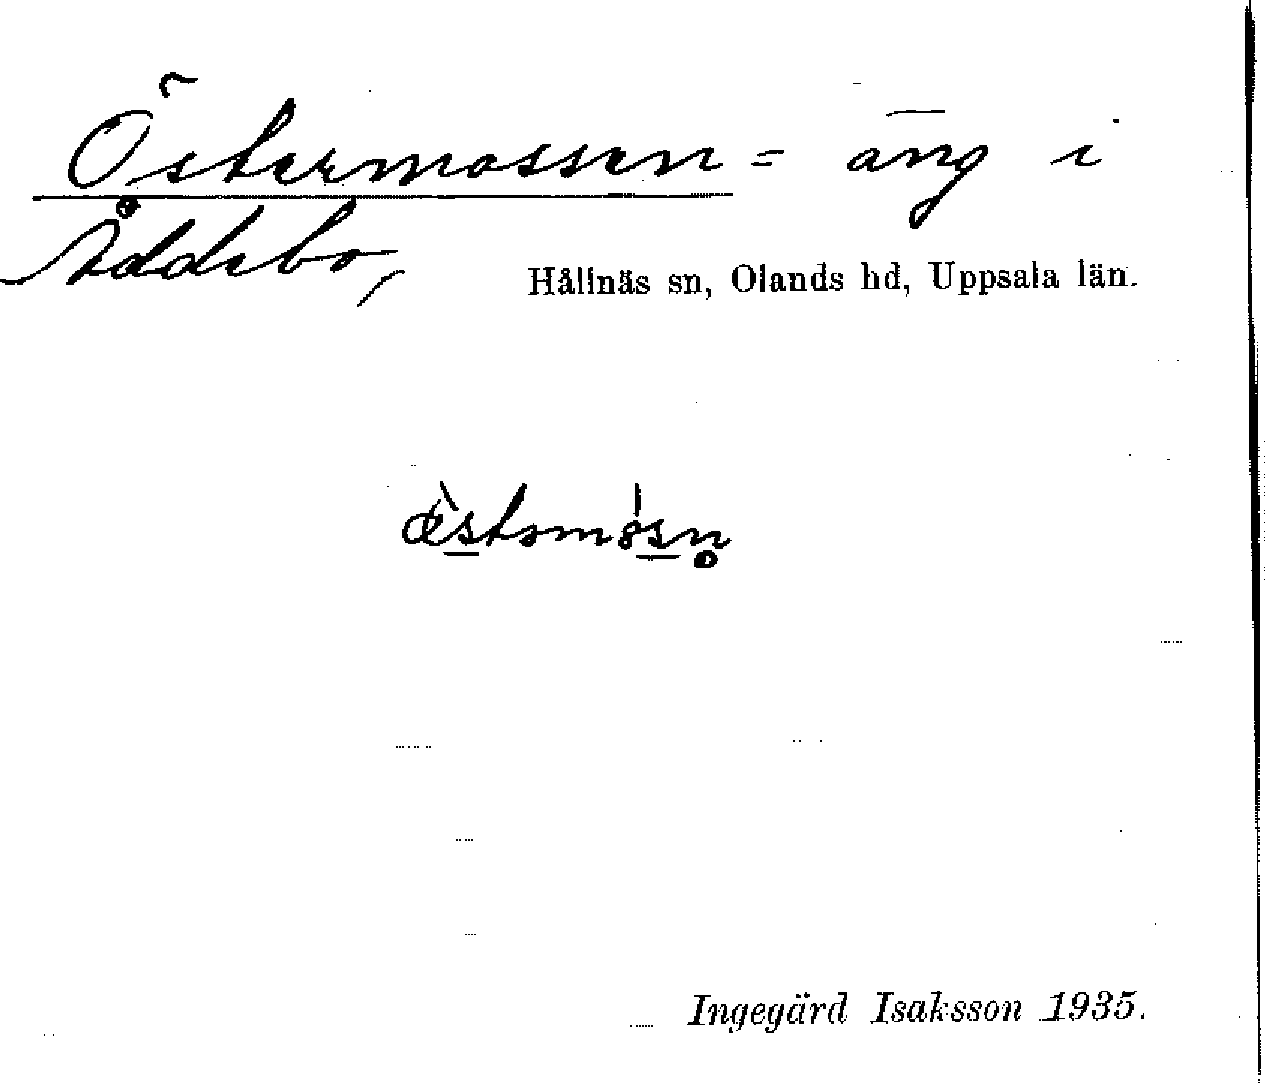 Östermossen = äng i
Åddebo,
Hållnäs sn, Olands hd, Uppsala län.
Ingegärd Isaksson 1935.